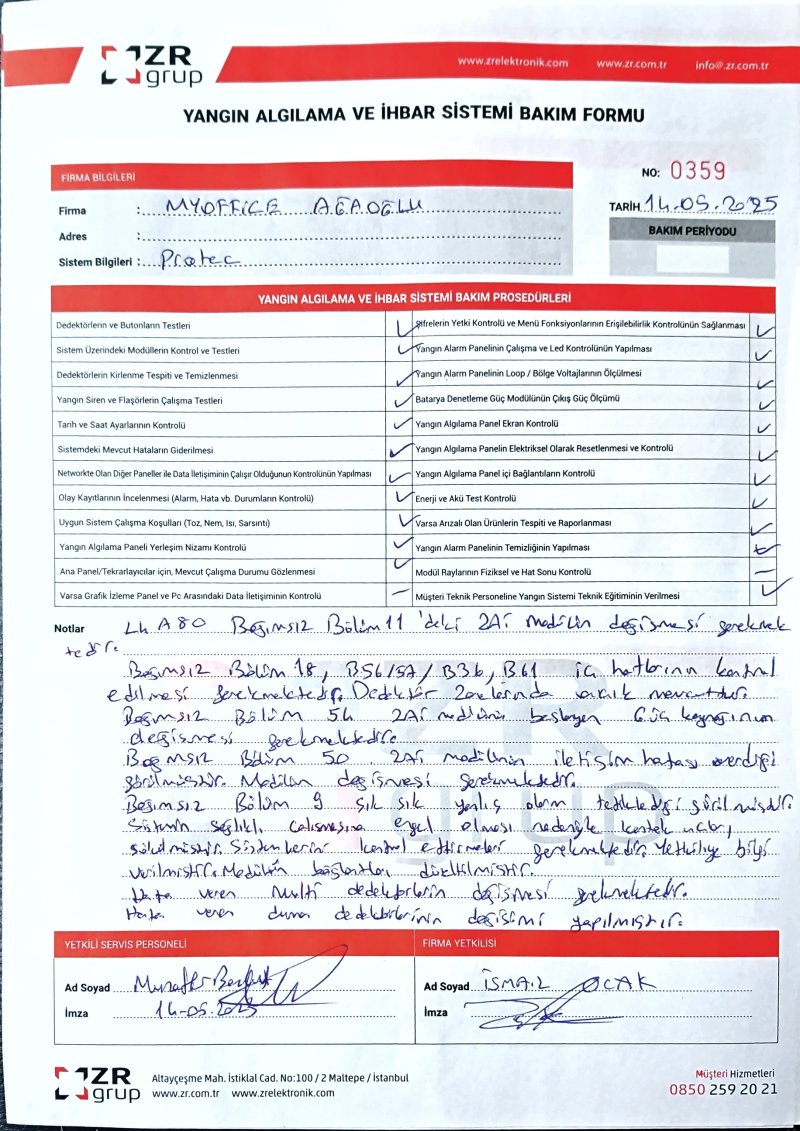 ZR
grup
www.zrelektronik.com www.zr.com.tr info@.zr.com.tr
YANGIN ALGILAMA VE İHBAR SİSTEMİ BAKIM FORMU
FİRMA BİLGİLERİ
NO: 0359
Firma : MYOFFICE AĞAOĞLU
TARİH 14.05.2025
Adres :
BAKIM PERİYODU
Sistem Bilgileri : Protec
YANGIN ALGILAMA VE İHBAR SİSTEMİ BAKIM PROSEDÜRLERİ
Dedektörlerin ve Butonların Testleri ✓ Şifrelerin Yetki Kontrolü ve Menü Fonksiyonlarının Erişilebilirlik Kontrolünün Sağlanması ✓
Sistem Üzerindeki Modüllerin Kontrol ve Testleri ✓ Yangın Alarm Panelinin Çalışma ve Led Kontrolünün Yapılması ✓
Dedektörlerin Kirlenme Tespiti ve Temizlenmesi ✓ Yangın Alarm Panelinin Loop / Bölge Voltajlarının Ölçülmesi ✓
Yangın Siren ve Flaşörlerin Çalışma Testleri ✓ Batarya Denetleme Güç Modülünün Çıkış Güç Ölçümü ✓
Tarih ve Saat Ayarlarının Kontrolü ✓ Yangın Algılama Panel Ekran Kontrolü ✓
Sistemdeki Mevcut Hataların Giderilmesi ✓ Yangın Algılama Panelin Elektriksel Olarak Resetlenmesi ve Kontrolü ✓
Networkte Olan Diğer Paneller ile Data İletişiminin Çalışır Olduğunun Kontrolünün Yapılması ✓ Yangın Algılama Panel içi Bağlantıların Kontrolü ✓
Olay Kayıtlarının İncelenmesi (Alarm, Hata vb. Durumların Kontrolü) ✓ Enerji ve Akü Test Kontrolü ✓
Uygun Sistem Çalışma Koşulları (Toz, Nem, Isı, Sarsıntı) ✓ Varsa Arızalı Olan Ürünlerin Tespiti ve Raporlanması ✓
Yangın Algılama Paneli Yerleşim Nizamı Kontrolü ✓ Yangın Alarm Panelinin Temizliğinin Yapılması
Ana Panel/Tekrarlayıcılar için, Mevcut Çalışma Durumu Gözlenmesi ✓ Modül Raylarının Fiziksel ve Hat Sonu Kontrolü –
Varsa Grafik İzleme Panel ve Pc Arasındaki Data İletişiminin Kontrolü – Müşteri Teknik Personeline Yangın Sistemi Teknik Eğitiminin Verilmesi ✓
Notlar A80 Bağımsız Bölüm 11'deki 2Ai modülün değişmesi gerekmek
tedir.
Bağımsız Bölüm 18, B56/57/B36, B61 iç hatlarının kontrol
edilmesi gerekmektedir. Dedektör zonelerinda açık mevcuttur.
Bağımsız Bölüm 54 2Ai modülünü besleyen Güç kaynağının
değişmesi gerekmektedir.
Bağımsız Bölüm 50. 2Ai modülünün iletişim hatası verdiği
görülmüştür. Modülün değişmesi gerekmektedir.
Bağımsız Bölüm 9 sık sık yanlış alarm tetiklediği görülmüştür.
Sistemin sağlıklı çalışmasına engel olması nedeniyle kontak uçları
sökülmüştür. Sistemlerini kontrol ettirmeleri gerekmektedir. Yetkiliye bilgi
verilmiştir. Modülün bağlantıları düzeltilmiştir.
Hata veren multi dedektörlerin değişmesi gerekmektedir.
Hata veren duman dedektörlerinin değişimi yapılmıştır.
YETKİLİ SERVİS PERSONELİ
FİRMA YETKİLİSİ
Ad Soyad
Ad Soyad İSMAİL OCAK
İmza 14.05.2025
İmza
ZR
grup
Altayçeşme Mah. İstiklal Cad. No:100 / 2 Maltepe / İstanbul
www.zr.com.tr www.zrelektronik.com
Müşteri Hizmetleri
0850 259 20 21